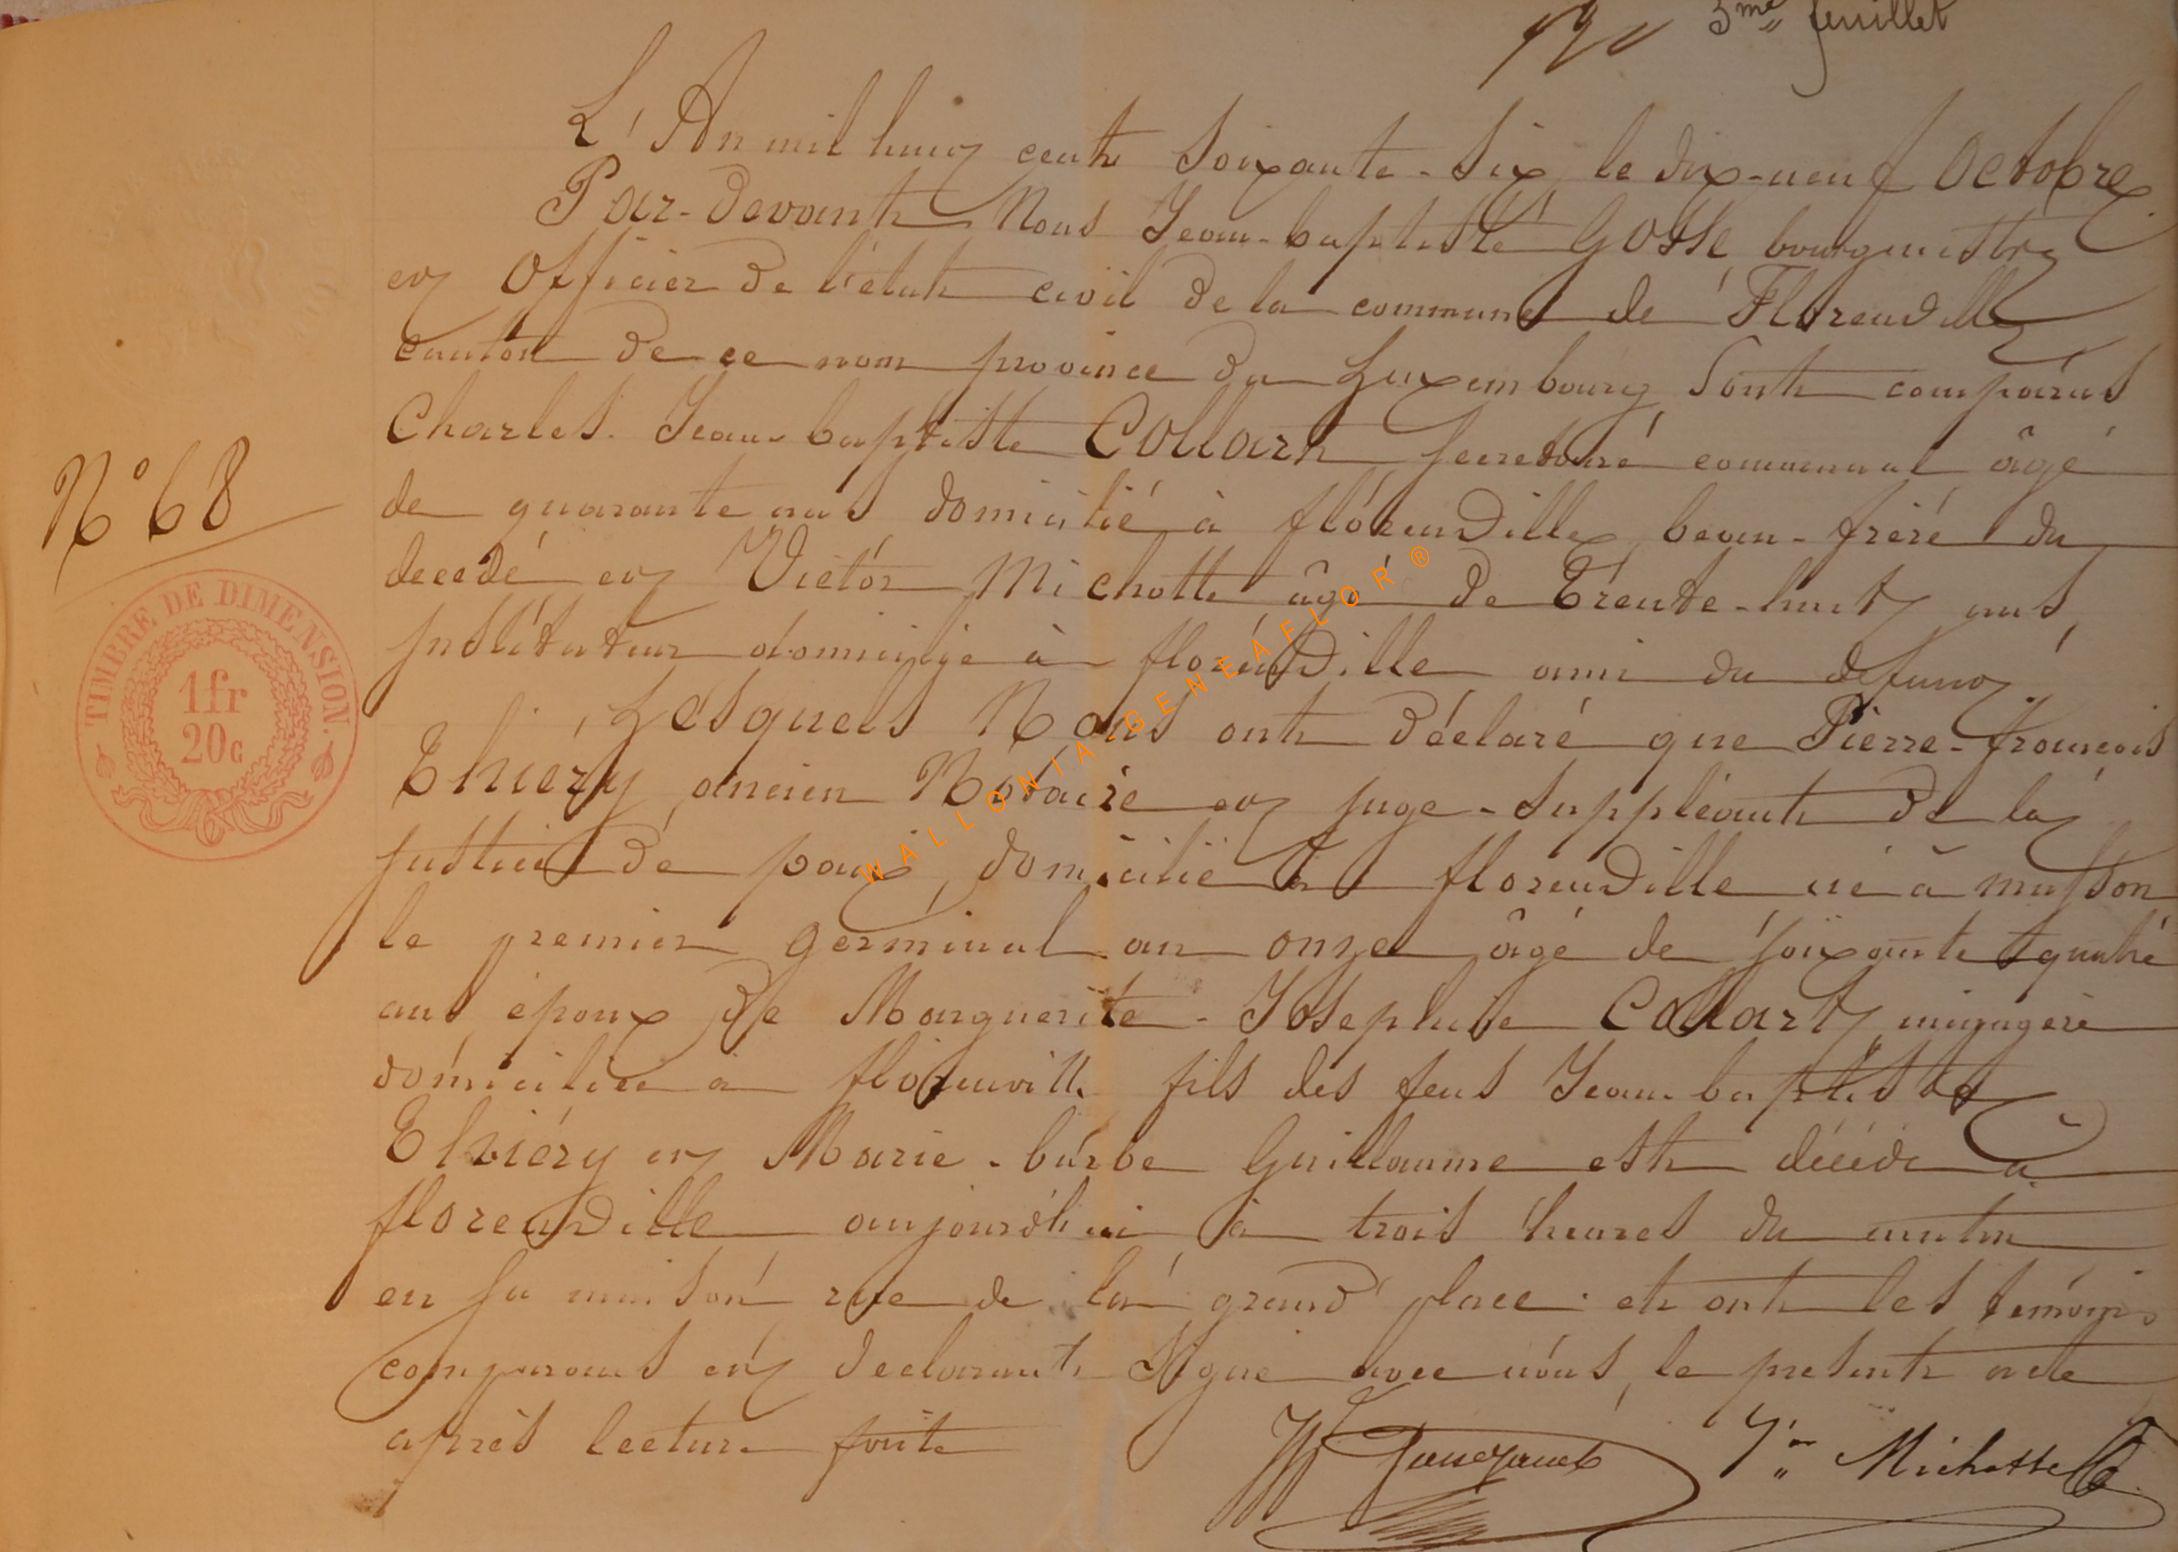 5me feuillet
L'An mil huit cent Soixante-Six, le dix-neuf Octobre
Par-devant Nous Jean-baptiste Gosse bourgmestre
et Officier de l'état civil de la commune de Florenville
canton de ce nom province du Luxembourg Sont comparus
Charles-Jean-baptiste Collart Secretaire communal âgé
N° 68
de quarante ans domicilié à florenville, beau-frère du
decedé et Victor Michotte âgé de Trente-huit ans,
Instituteur domicilié à florenville ami du defunt.
Lesquels Nous ont déclaré que Pierre-françois
Thiéry ancien Notaire et juge-Suppléant de la
justice de paix, domicilié à florenville né à musson
le premier germinal an onze âgé de soixante quatre
ans époux de Marguerite-Josephine Collart, ménagère
domiciliée à florenville fils des feus Jean-baptiste
Thiéry et Marie-barbe Guillaume est décédé à
florenville aujourd'hui à trois heures du matin
en sa maison rue de la grand place. et ont les témoins
comparants et declarant Signé avec nous, le present acte
après lecture faite
Michotte
TIMBRE DE DIMENSION.
1fr
20c
WALLONIA GENEAFLOR®